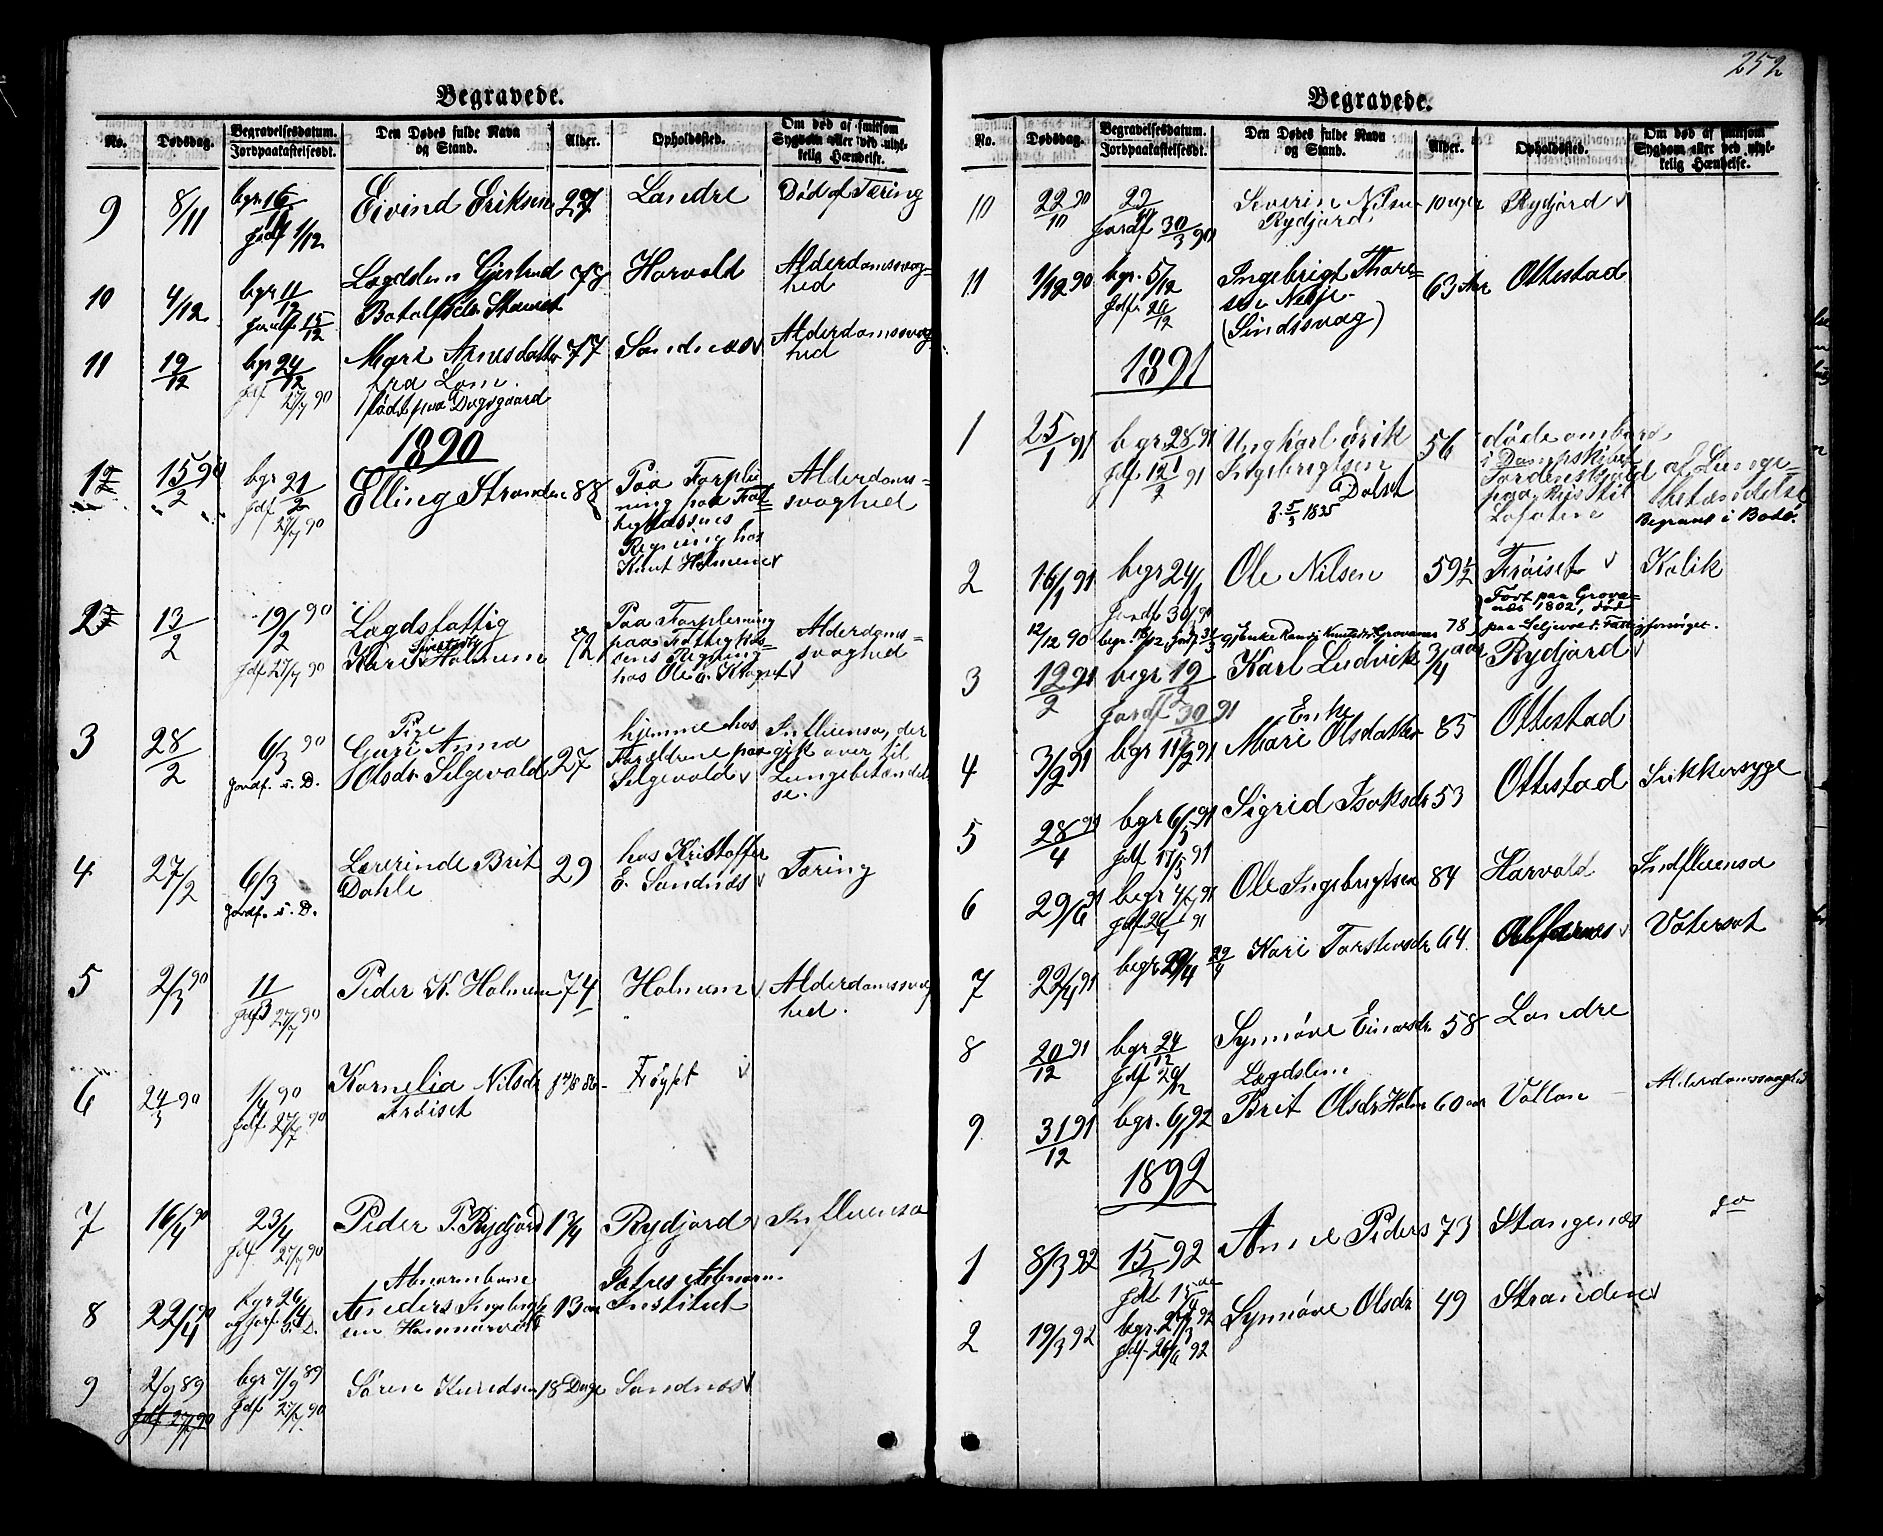 252
Begravede.
No. Dødsdag. Begravelsesdatum. Jordpaakastelsesdt. Den Dødes fulde Navn og Stand. Alder. Opholdssted. Om død af smitsom Sygdom eller ved ulykkelig Hændelse.
9 8/11 bgr 16 Eivind Eriksen 27 Landre Död af Tæring
jdf 1/12
10 4/12 bgr 11/12 Lægdslem Gjertrud 78 Horvald Alderdomssvag-
jordf. 15/12 hed
11 19/12 bgr 24/12 Mari Arnesdatter 77 Sandnæs Alderdomssvag-
jdf 27/7 90 fra Lom. hed
født paa Dagsgaard
1890
1 15/2 90 bgr 21/2 Elling Stranden 88 Paa Forplei- Alderdoms-
jdf 27/7 90 ning paa Fat- svaghed
Regning hos
Knut Holmene
2 13/2 19/2 90 Lægdsfattig 72 Paa Forpleining Alderdoms-
jdf 27/7 90 Kari Holmem paa Fattigkas- svaghed
sens Regning
hos Ole
3 28/2 6/3 90 Pige hjemme hos Influensa, der
Guri Anna Forældrene paa gik over til
jordf. s. D. Olsdr Selgevald 27 Selgevald Lungebetændel-
se.
4 27/2 6/3 Lærerinde Brit 29 hos Kristoffer Tæring
jordf. s. D. Dahle E. Sandnæs
5 2/3 90 11/3 Peder K. Holmem 74 Holmem Alderdomssvag-
jdf 27/7 90 hed.
6 24/3 90 1/4 90 Kornelia Nilsdr Frøyset
jdf. 27/7 90 Frøiset
7 16/4 90 23/4 Peder P. Rydjord 13/4 Rydjord Influensa
jdf. 27/7 90
8 22/4 90 bgr 26/4 Abnormbarn
og jorf. s. D. Anders Ingebrigt- 13 aar Institut
sen Hammervold
9 2/9 89 bgr 7/9 89 Søren Knudsen 18 Dage Sandnæs
jdf 27/7 90 jdf. 27/7 90
Begravede.
No. Dødsdag. Begravelsesdatum. Jordpaakastelsesdt. Den Dødes fulde Navn og Stand. Alder. Opholdssted. Om død af smitsom Sygdom eller ved ulykkelig Hændelse.
10 22/10 90 29 Severin Nilsen 10 uger Rydjord
jordf 30/3 90 Rydjord
11 1/12 90 bgr. 5/12 Ingebrigt Thore- 63 Aar Ottestad
jdf. 29/12 sen Nesje.
(Sindssvag)
1891
1 25/1 91 bgr 28/1 91 Ungkarl Erik 56 døde ombord af Lunge-
jdf. 12/7 91 Ingebrigtsen i Dampskibet betændelse
Dalset Tordenskjold
f. 5/3 1835 paa Reise til Begravet i Bodø.
Lofoten
2 16/1 91 bgr 24/1 Ole Nilsen 59 1/2 Frøiset Kolik
jordf 30/1 90 Født paa Grova-
næs 1802, død
12/12 90 Enke Randi Knutsdr Grovanes 78 paa Seljevold. Fattigforsørget.
3 12/2 91 bgr 19/2 Karl Ludvik 3/4 aar Rydjord
jordf 30/3 91
4 3/2 91 bgr 11/2 91 Enke Mari Olsdatter 85 Ottestad
5 28/4 91 bgr 6/5 91 Sigrid Isaksdr 53 Ottestad Sukkersyge
jdf 17/5 91
6 29/6 91 bgr 4/7 91 Ole Ingebrigtsen 84 Harvold Indfluensa
jdf. 26/7 91
7 22/4 91 bgr 29/4 29/4 Kari Torstensdr 64 Alfarnes Vatersot
8 20/12 91 bgr 24/12 Synnøve Einarsdr 58 Landre
jdf 29/12
9 31/12 91 bgr. 6/1 92 Lægdslem Brit Olsdr Holm 60 aar Vollan Alderdomssvaghed
1892
1 8/3 92 15/3 92 Anne Peders 73 Stangenæs do
jdf 15
2 19/3 92 bgr. 27/3 92 Synnøve Olsdr 49 Stranden
jdf. 26/6 92